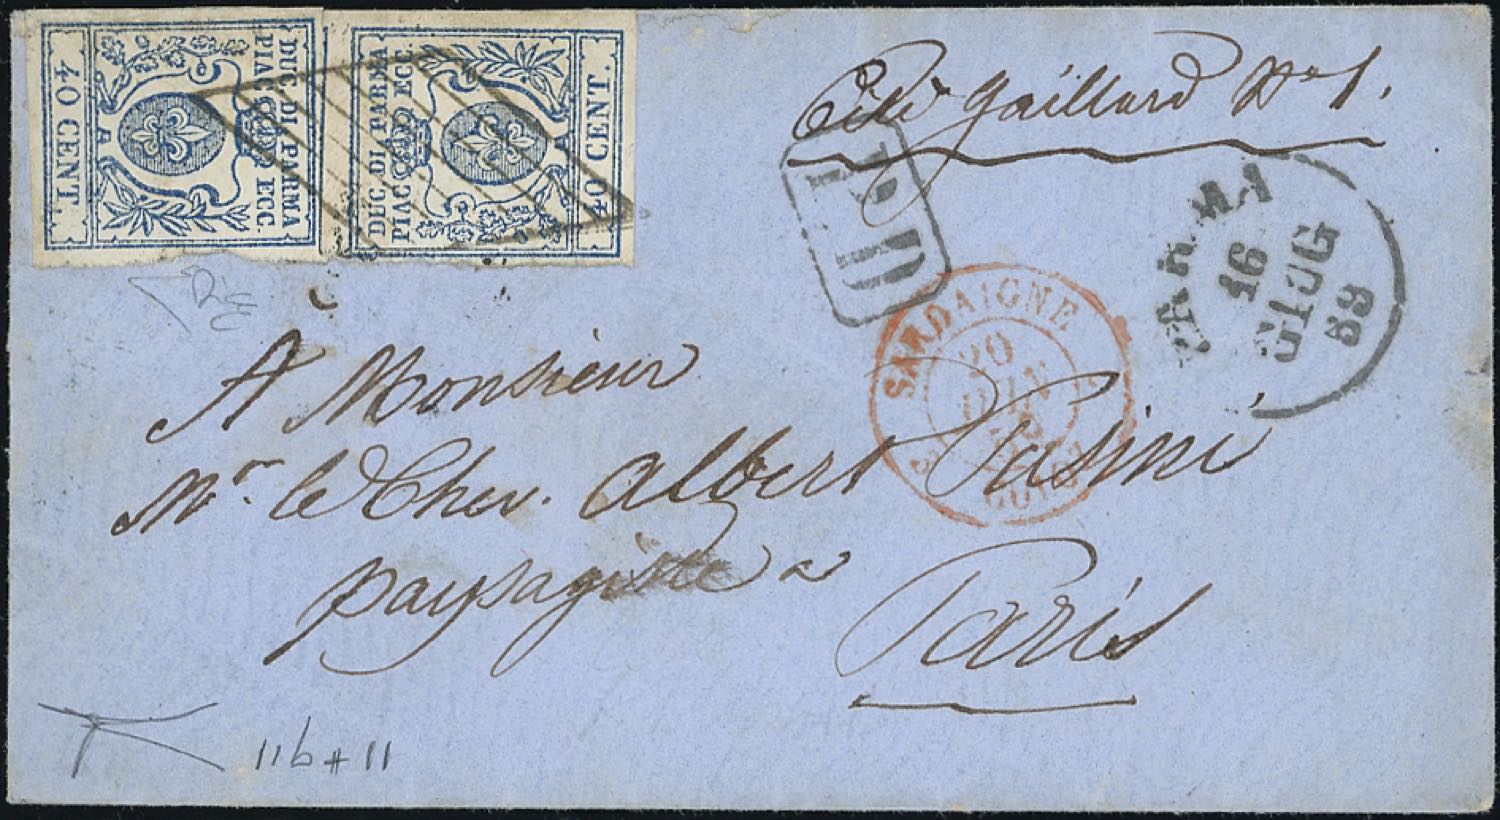 DUC. DI PARMA
PIAC. ECC.
40 CENT.
DUC. DI PARMA
PIAC. ECC.
40 CENT.
Cité Gaillard No 1.
P.D
PARMA
16
GIUG
59
SARDAIGNE
20
JUIN
59
A Monsieur
Mr. le Chev. Albert Pasini
paysagiste à
Paris
11b # 11